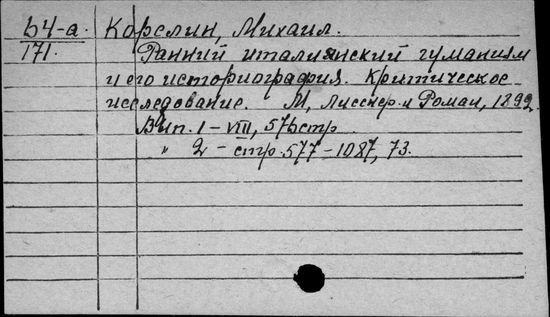 64-а. Корелин, Михаил.
171. Ранний италиянский гуманизм
и его историография. Критическое
исследование. М, Лисснер и Роман, 1892.
Вып. 1 - VIII, 576 стр
" 2 - стр. 577-1087, 73.